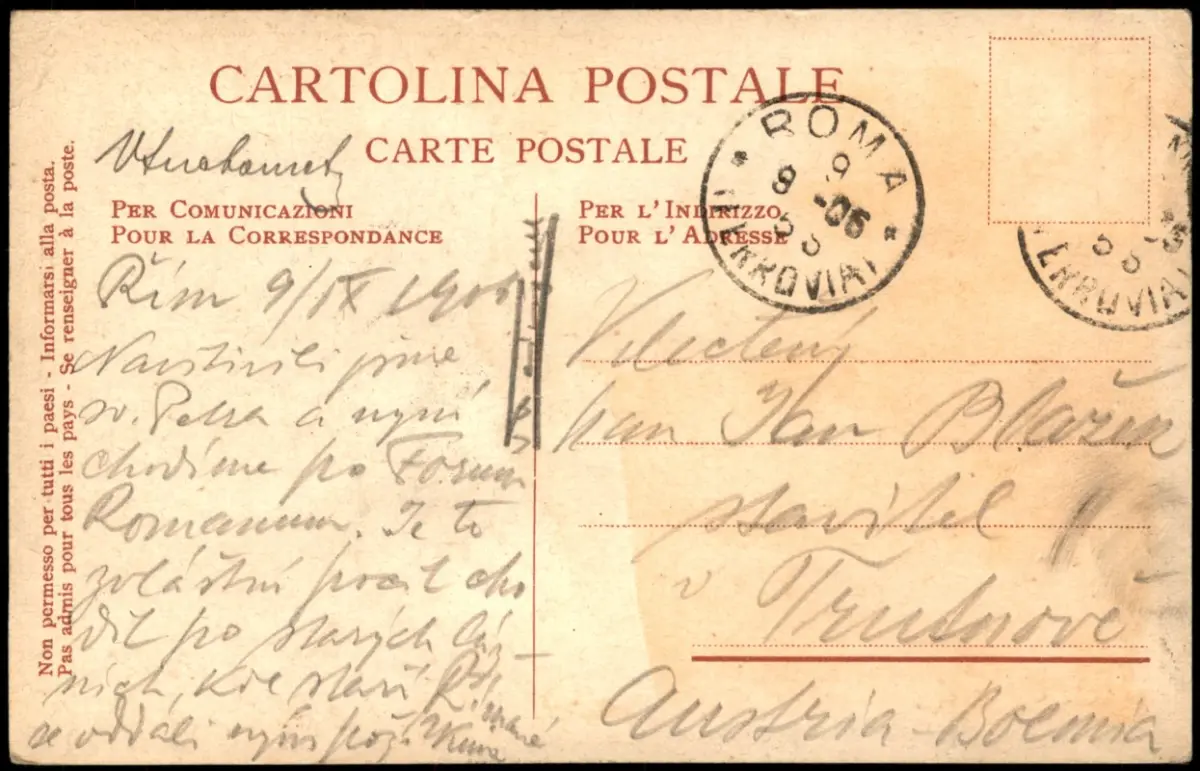 CARTOLINA POSTALE
CARTE POSTALE
PER COMUNICAZIONI
POUR LA CORRESPONDANCE
PER L'INDIRIZZO
POUR L'ADRESSE
Non permesso per tutti i paesi - Informarsi alla posta.
Pas admis pour tous les pays - Se renseigner à la poste.
ROMA
9
8 -06
FERROVIA
Řím 9/IX 1906
Navštívili jsme
sv. Petra a nyní
chodíme po Forum
Romanum. Je to
zvláštní pocit cho
dit po starých
kde staří Římané
se oddali
Velectěný
pan Jan Blažek
stavitel
v Trutnově
Austria-Boemia